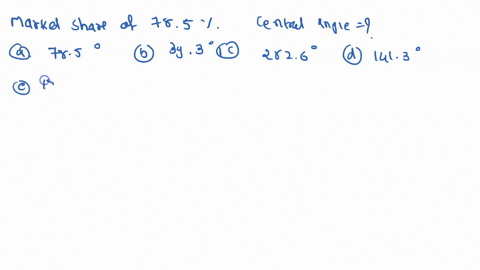 Market share of 78.5 %. Central angle = ?
(a) 78.5° (b) 39.3° (c) 282.6° (d) 141.3°
(e)